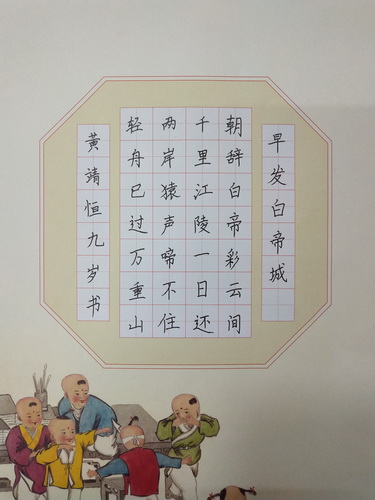 早发白帝城
朝辞白帝彩云间
千里江陵一日还
两岸猿声啼不住
轻舟已过万重山
黄靖恒九岁书